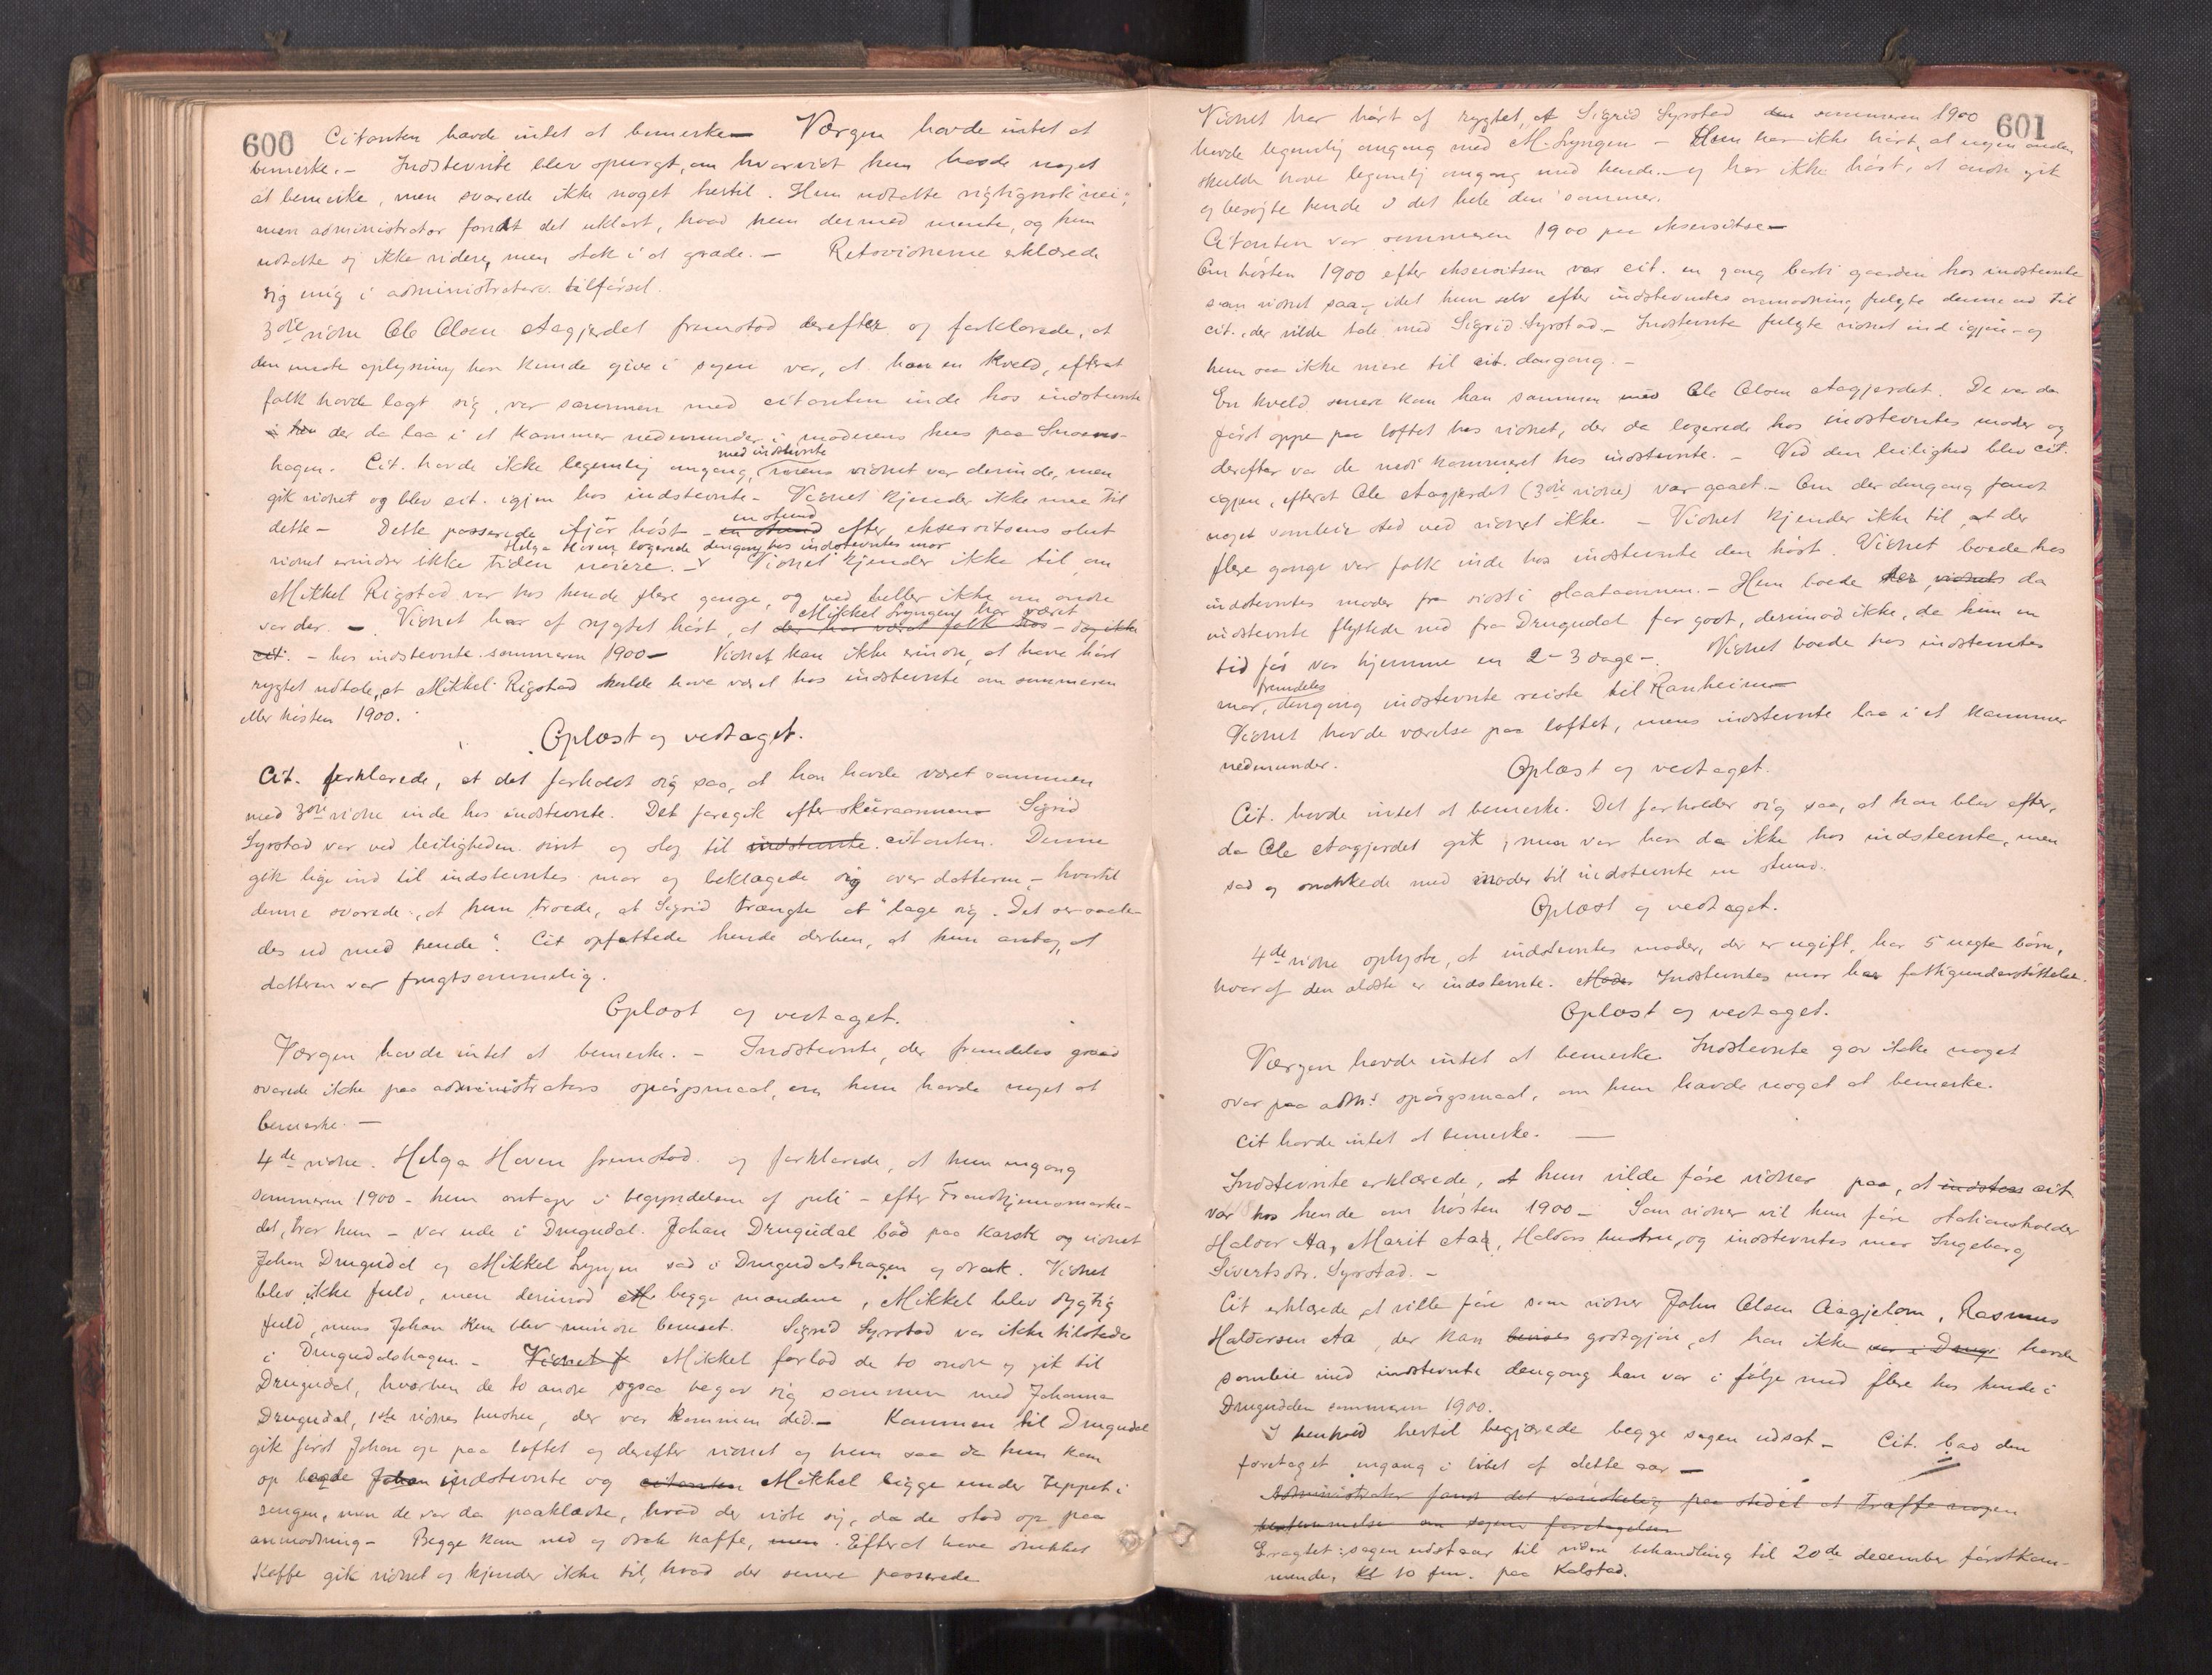 600
Citanten havde intet at bemerke — Vœrgen havde intet at
bemerke. – Indstevnte blev spurgt, om hvorvidt hun havde noget
at bemerke, men svarede ikke noget hertil. Hun udtalte rigtignok "nei",
men administrator fandt det uklart, hvad hun dermed mente, og hun
udtalte sig ikke videre, men stak i at græde. – Retsvidnerne erklærede
sig enig i administrators tilførsel.
3die vidne Ole Olsen Aagjerdet fremstod derefter og forklarede, at
den eneste oplysning han kunde give i sagen var, at han en kveld, efterat
folk havde lagt sig, var sammen med citanten inde hos indstevnte
i hen der da laa i et kammer nedenunder i moderens hus paa
hagen. Cit. havde ikke legemlig omgang med indstevnte, mens vidnet var derinde, men
gik vidnet og blev cit. igjen hos indstevnte – Vidnet kjender ikke mere til
dette – Dette passerede ifjor høst – en stund en stund efter eksersitsens slut
vidnet erindrer ikke tiden nøiere. – Helga Haven logerede dengang hos indstevntes mor Vidnet kjender ikke til om
Mikkel Rigstad var hos hende flere gange, og ved heller ikke om andre
var der. – Vidnet har af rygtet hørt, at der har været folk hos Mikkel Lyngen har været – dog ikke
cit. – hos indstevnte sommeren 1900 — Vidnet kan ikke erindre, at have hørt
rygtet udtale, at Mikkel Rigstad skulde have været hos indstevnte om sommeren
eller høsten 1900.
Oplæst og vedtaget.
Cit. forklarede, at det forholdt sig saa, at han havde været sammen
med 3die vidne inde hos indstevnte. Det foregik efter skuraannen – Sigrid
Syrstad var ved leiligheden sint og slog til indstevnte citanten. Denne
gik lige ind til indstevntes mor og beklagede sig over datteren – hvortil
denne svarede, at hun troede, at Sigrid trængte at "lage sig. Det ser saale-
des ud med hende". Cit opfattede hende derhen, at hun antog, at
datteren var frugtsommelig.
Oplæst og vedtaget.
Værgen havde intet at bemerke. – Indstevnte, der fremdeles græd
svarede ikke paa administrators spørgsmaal, om hun havde noget at
bemerke. —
4de vidne. Helga Haven fremstod og forklarede, at hun engang
sommeren 1900 – hun antager i begyndelsen af juli – efter Trondhjemsmarke-
det, tror hun – var ude i Drugudal. Johan Drugudal bød paa karsk og vidnet
Johan Drugudal og Mikkel Lyngen sad i Drugudalshagen og drak. Vidnet
blev ikke fuld, men derimod begge mændene, Mikkel blev dygtig
fuld, mens Johan kun blev mindre beruset. Sigrid Syrstad var ikke tilstede
i Drugudalshagen – Vidnet f Mikkel forlod de to andre og gik til
Drugudal, hvorhen de to andre ogsaa begav sig sammen med Johanna
Drugudal, 1ste vidnes hustru, der var kommen did. – Kommen til Drugudal
gik først Johan op paa loftet og derefter vidnet og hun saa da hun kom
op baade Johan indstevnte og citanten Mikkel ligge under teppet i
sengen, men de var da paaklædte, hvad der viste sig, da de stod op paa
anmodning – Begge kom ned og drak kaffe, men. Efterat have drukket
kaffe gik vidnet og kjender ikke til, hvad der senere passerede
601
Vidnet har hørt af rygtet, at Sigrid Syrstad den sommeren 1900
havde legemlig omgang med M. Lyngen – Hun har ikke hørt, at nogen anden
skulde have legemlig omgang med hende – og har ikke hørt, at andre gik
og besøgte hende i det hele den sommer.
Citanten var sommeren 1900 paa eksersitse —
Om høsten 1900 efter eksersitsen var cit. en gang borti gaarden hos indstevnte
som vidnet saa –, idet hun selv efter indstevntes anmodning, fulgte denne ud til
cit., der vilde tale med Sigrid Syrstad – Indstevnte fulgte vidnet ind igjen – og
hun saa ikke mere til cit. dengang. –
En kveld senere kom han sammen med Ole Olsen Aagjerdet. De var da
først oppe paa loftet hos vidnet, der da logerede hos indstevntes moder og
derefter var de nedi kammeret hos indstevnte. – Ved den leilighed blev cit.
igjen, efterat Ole Aagjerdet (3die vidne) var gaaet. – Om der dengang fandt
noget samleie sted ved vidnet ikke. – Vidnet kjender ikke til, at der
flere gange var folk inde hos indstevnte den høst. Vidnet boede hos
indstevntes moder fra sidst i slaataannen. – Hun boede der, vidnets da
indstevnte flyttede ned fra Drugudal for godt, derimod ikke, da hun en
tid før var hjemme en 2 – 3 dage –. Vidnet boede hos indstevntes
mor fremdeles, dengang indstevnte reiste til Ranheim —
Vidnet havde værelse paa loftet, mens indstevnte laa i et kammer
nedenunder.
Oplæst og vedtaget.
Cit. havde intet at bemerke. Det forholder sig saa, at han blev efter,
da Ole Aagjerdet gik, men var han da ikke hos indstevnte, men
sad og snakkede med moder til indstevnte en stund.
Oplæst og vedtaget.
4de vidne oplyste, at indstevntes moder, der er ugift, har 5 uegte børn,
hvoraf den ældste er indstevnte. Moder Indstevntes mor har fattigunderstøttelse.
Oplæst og vedtaget.
Værgen havde intet at bemerke. Indstevnte gav ikke noget
svar paa adm's spørgsmaal, om hun havde noget at bemerke.
Cit havde intet at bemerke. —
Indstevnte erklærede, at hun vilde føre vidner paa, at indstevn cit
var hos hende om høsten 1900 – Som vidner vil hun føre stationsholder
Haldor Aa, Marit Aa, Haldors hustru, og indstevntes mor Ingeborg
Sivertsdtr. Syrstad. –
Cit erklærede at ville føre som vidner John Olsen Aagjelom, Rasmus
Haldorsen Aa, der kan bevise godtgjøre, at han ikke var i Drug havde
samleie med indstevnte dengang han var i følge med flere hos hende i
Drugudalen sommeren 1900.
I henhold hertil begjærede begge sagen udsat – Cit. bad den
foretaget engang i løbet af dette aar —
Administrator fandt det vanskelig paa stedet at træffe nogen
bestemmelse om sagens foretagelse
Eragtet: sagen udstaar til videre behandling til 20de december førstkom-
mende, kl 10 fm. paa Kalstad.